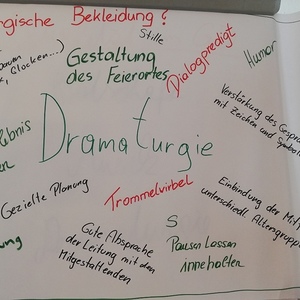 rgische Bekleidung?
Stille
Gestaltung
des Feierortes
Dialogpredigt
Humor
Glocken...)
Verstärkung des Gespro
mit Zeichen und Symbo
Dramaturgie
lebnis
Gezielte Planung
Trommelwirbel
Einbindung der Mitf
unterschiedl. Altersgrupp
Gute Absprache
der Leitung mit den
Mitgestaltenden
S
Pausen Lassen
innehalten